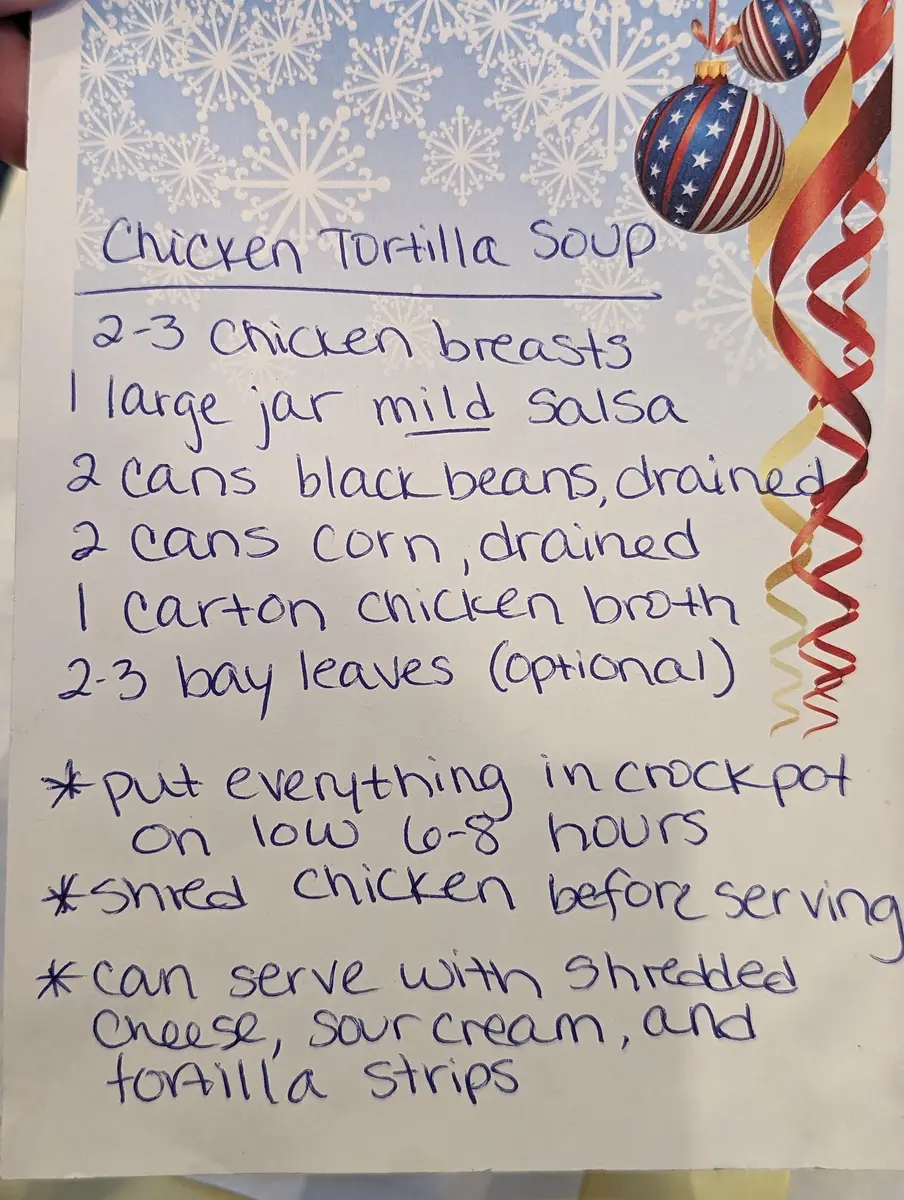 Chicken Tortilla Soup
2-3 chicken breasts
1 large jar mild salsa
2 cans black beans, drained
2 cans corn, drained
1 carton chicken broth
2-3 bay leaves (optional)
*put everything in crockpot
on low 6-8 hours
*shred chicken before serving
*can serve with shredded
cheese, sour cream, and
tortilla strips